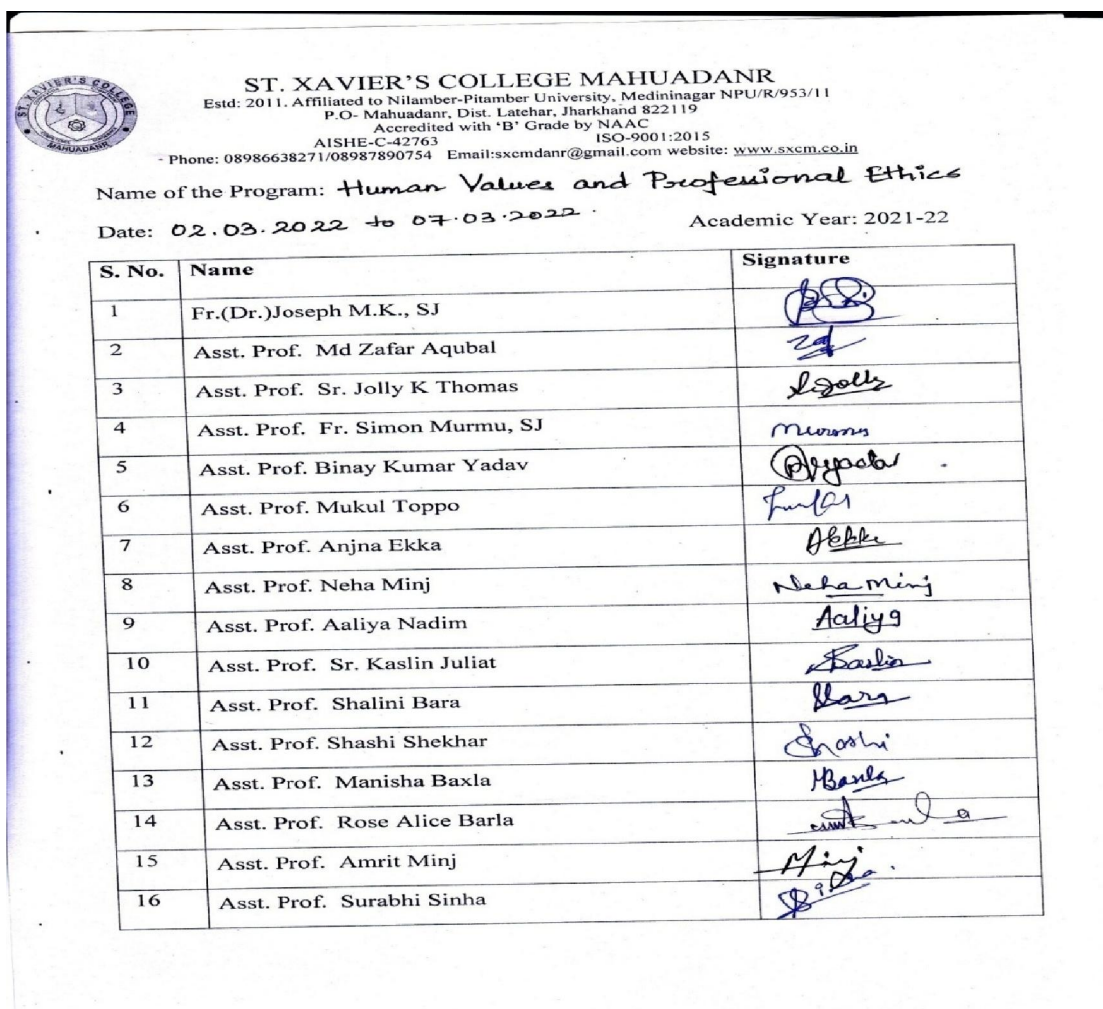 ST. XAVIER'S COLLEGE
MAHUADANR
ST. XAVIER'S COLLEGE MAHUADANR
Estd: 2011. Affiliated to Nilamber-Pitamber University, Medininagar NPU/R/953/11
P.O- Mahuadanr, Dist. Latehar, Jharkhand 822119
Accredited with 'B' Grade by NAAC
AISHE-C-42763 ISO-9001:2015
Phone: 08986638271/08987890754 Email:sxcmdanr@gmail.com website: www.sxcm.co.in
Name of the Program: Human Values and Professional Ethics
Date: 02.03.2022 to 07.03.2022. Academic Year: 2021-22
S. No. Name Signature
1 Fr.(Dr.)Joseph M.K., SJ
2 Asst. Prof. Md Zafar Aqubal
3 Asst. Prof. Sr. Jolly K Thomas
4 Asst. Prof. Fr. Simon Murmu, SJ
5 Asst. Prof. Binay Kumar Yadav
6 Asst. Prof. Mukul Toppo
7 Asst. Prof. Anjna Ekka
8 Asst. Prof. Neha Minj Neha Minj
9 Asst. Prof. Aaliya Nadim Aaliya
10 Asst. Prof. Sr. Kaslin Juliat
11 Asst. Prof. Shalini Bara
12 Asst. Prof. Shashi Shekhar Shashi
13 Asst. Prof. Manisha Baxla
14 Asst. Prof. Rose Alice Barla
15 Asst. Prof. Amrit Minj Minj
16 Asst. Prof. Surabhi Sinha